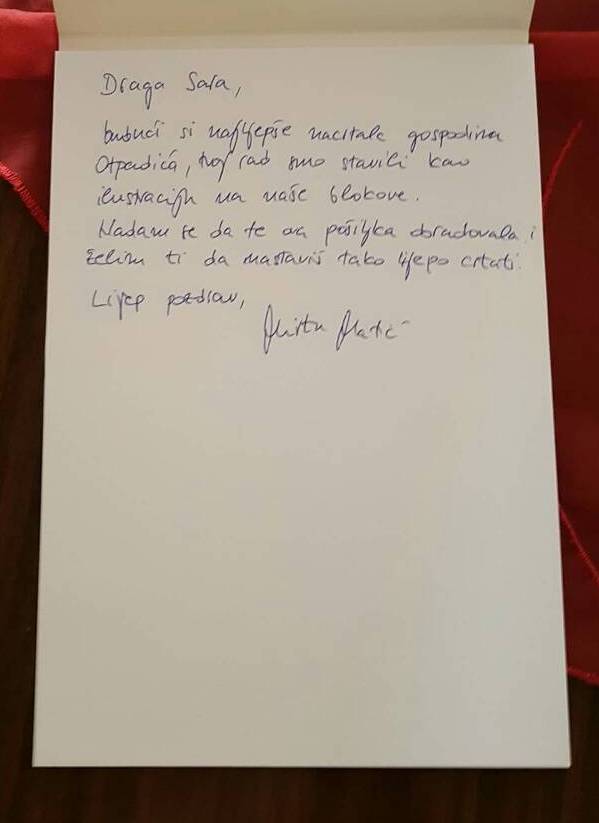 Draga Sara,
budući si najljepše nacrtala gospodina
Otpadića, tvoj rad smo stavili kao
ilustraciju na naše blokove.
Nadam se da te ova pošiljka obradovala i
želim ti da nastaviš tako lijepo crtati.
Lijep pozdrav,